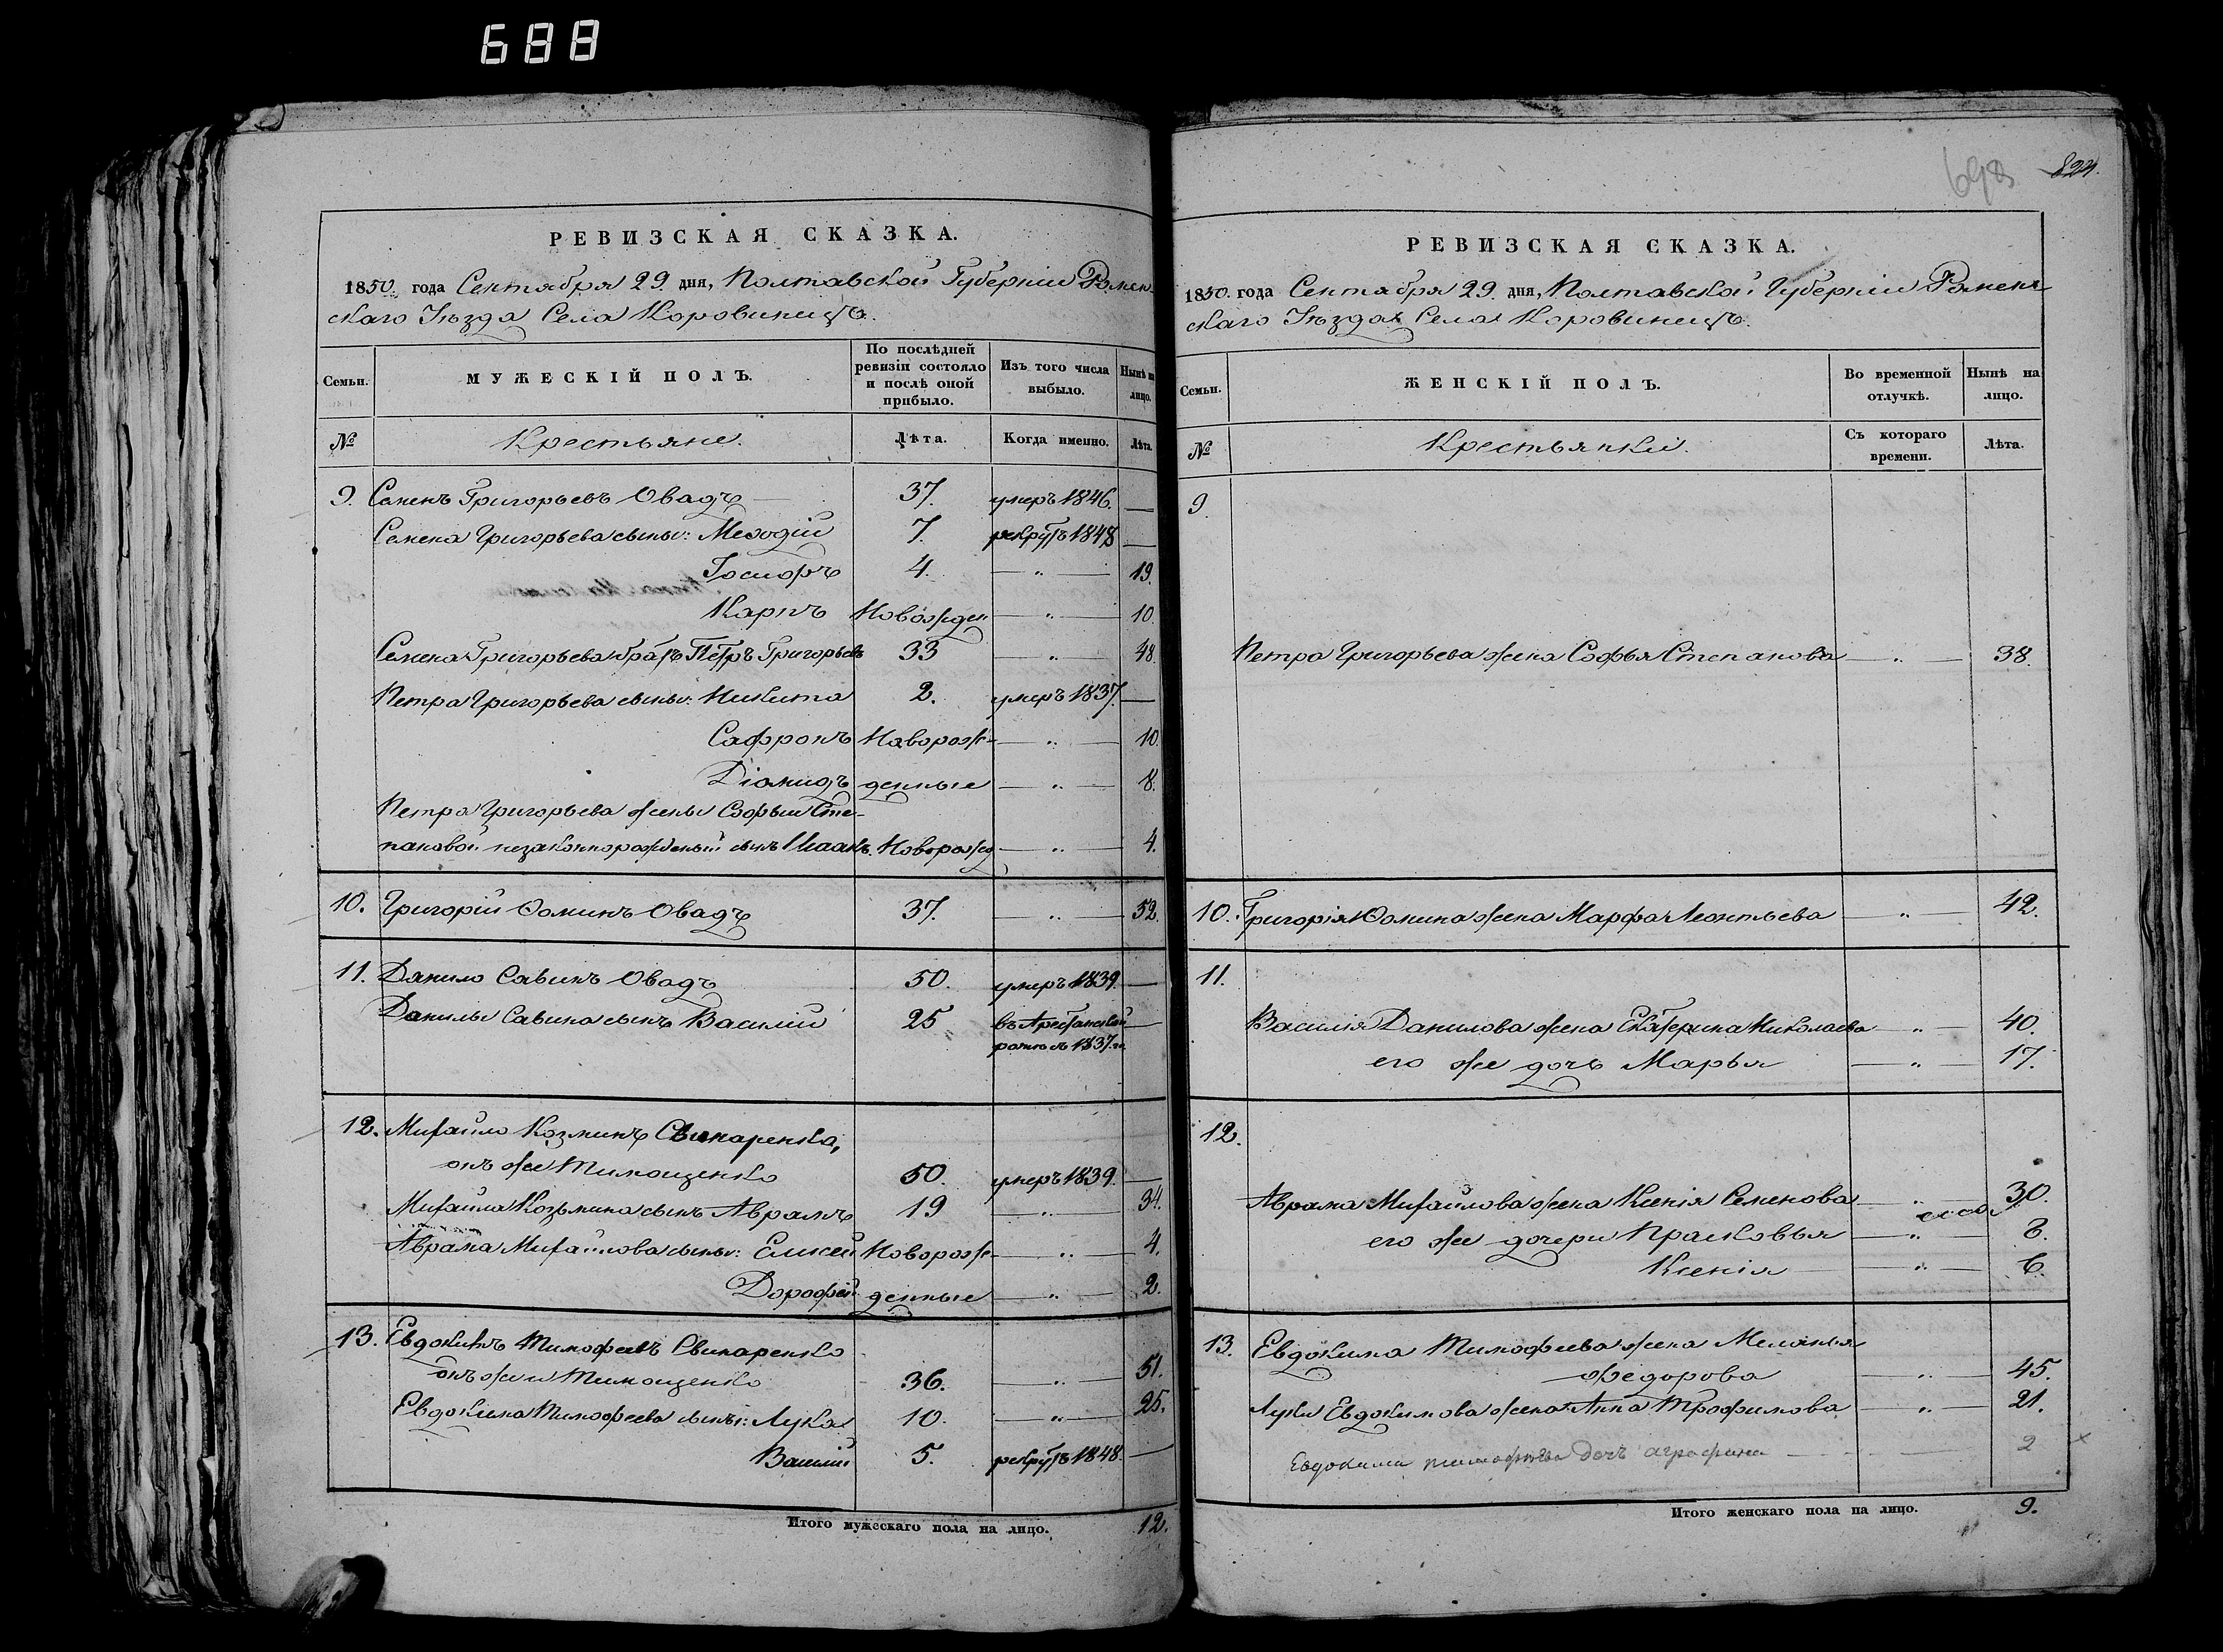 688
698
824.
РЕВИЗСКАЯ СКАЗКА.
1850. года Сентября 29. дня, Полтавской Губерніи Ромен-
скаго Уѣзда Села Коровинецъ.
Семьи.
МУЖЕСКІЙ ПОЛЪ.
По послѣдней ревизіи состояло и послѣ оной прибыло.
Изъ того числа выбыло.
Нынѣ на лицо.
№
Крестьяне.
Лѣта.
Когда именно.
Лѣта.
9. Семенъ Григорьевъ Овадъ — 37. умеръ 1846. —
Семена Григорьева сыны: Меѳодій 7. рекрутъ 1848 —
Іосифъ 4. — „ — 19.
Карпъ Новорожден — „ — 10.
Семена Григорьева братъ Петръ Григорьевъ 33 — „ — 48.
Петра Григорьева сыны: Никита 2. умеръ 1837. —
Сафронъ Новорож- — „ — 10.
Діомидъ денные — „ — 8.
Петра Григорьева жены Софьи Сте-
пановой незаконнорожденый сынъ Исаакъ. Новорожд — „ — 4.
10. Григорій Ѳоминъ Овадъ 37. — „ — 52.
11. Данило Савинъ Овадъ 50. умеръ 1839. —
Данилы Савина сынъ Василій 25 въ Арестанской —
ротѣ съ 1837. го
12. Михайло Козминъ Свинаренко,
онъ же Тимощенко 50. умеръ 1839. —
Михайла Козьмина сынъ Аврамъ 19 — „ — 34.
Аврама Михайлова сыны: Елисей Новорож- — „ — 4.
Дорофей денные — „ — 2.
13. Евдокимъ Тимофеевъ Свинаренко
онъ же и Тимощенко 36. — „ — 51.
Евдокима Тимофеева сыны: Лука 10. — „ — 25.
Василій 5. рекрутъ 1848. —
Итого мужескаго пола на лицо. 12.
РЕВИЗСКАЯ СКАЗКА.
1850. года Сентября 29. дня, Полтавской Губерніи Роменъ-
скаго Уѣзда Села Коровинецъ.
Семьи.
ЖЕНСКІЙ ПОЛЪ.
Во временной отлучкѣ.
Нынѣ на лицо.
№
Крестьянки.
Съ котораго времени.
Лѣта.
9.
Петра Григорьева жена Софья Степанова — „ — 38.
10. Григорія Ѳомина жена Марфа Леонтьева — „ — 42.
11.
Василія Данилова жена Екатерина Николаева — „ — 40.
его же дочь Марья — „ — 17.
12.
Аврама Михайлова жена Ксенія Семенова — „ — 30.
его же дочери Прасковья — „ — 8.
Ксенія — „ — 6.
13. Евдокима Тимофеева жена Меланья
Федорова — „ — 45.
Луки Евдокимова жена Анна Трофимова — „ — 21.
Евдокима тимофѣева дочъ аграфина — 2 ×
Итого женскаго пола на лицо. 9.